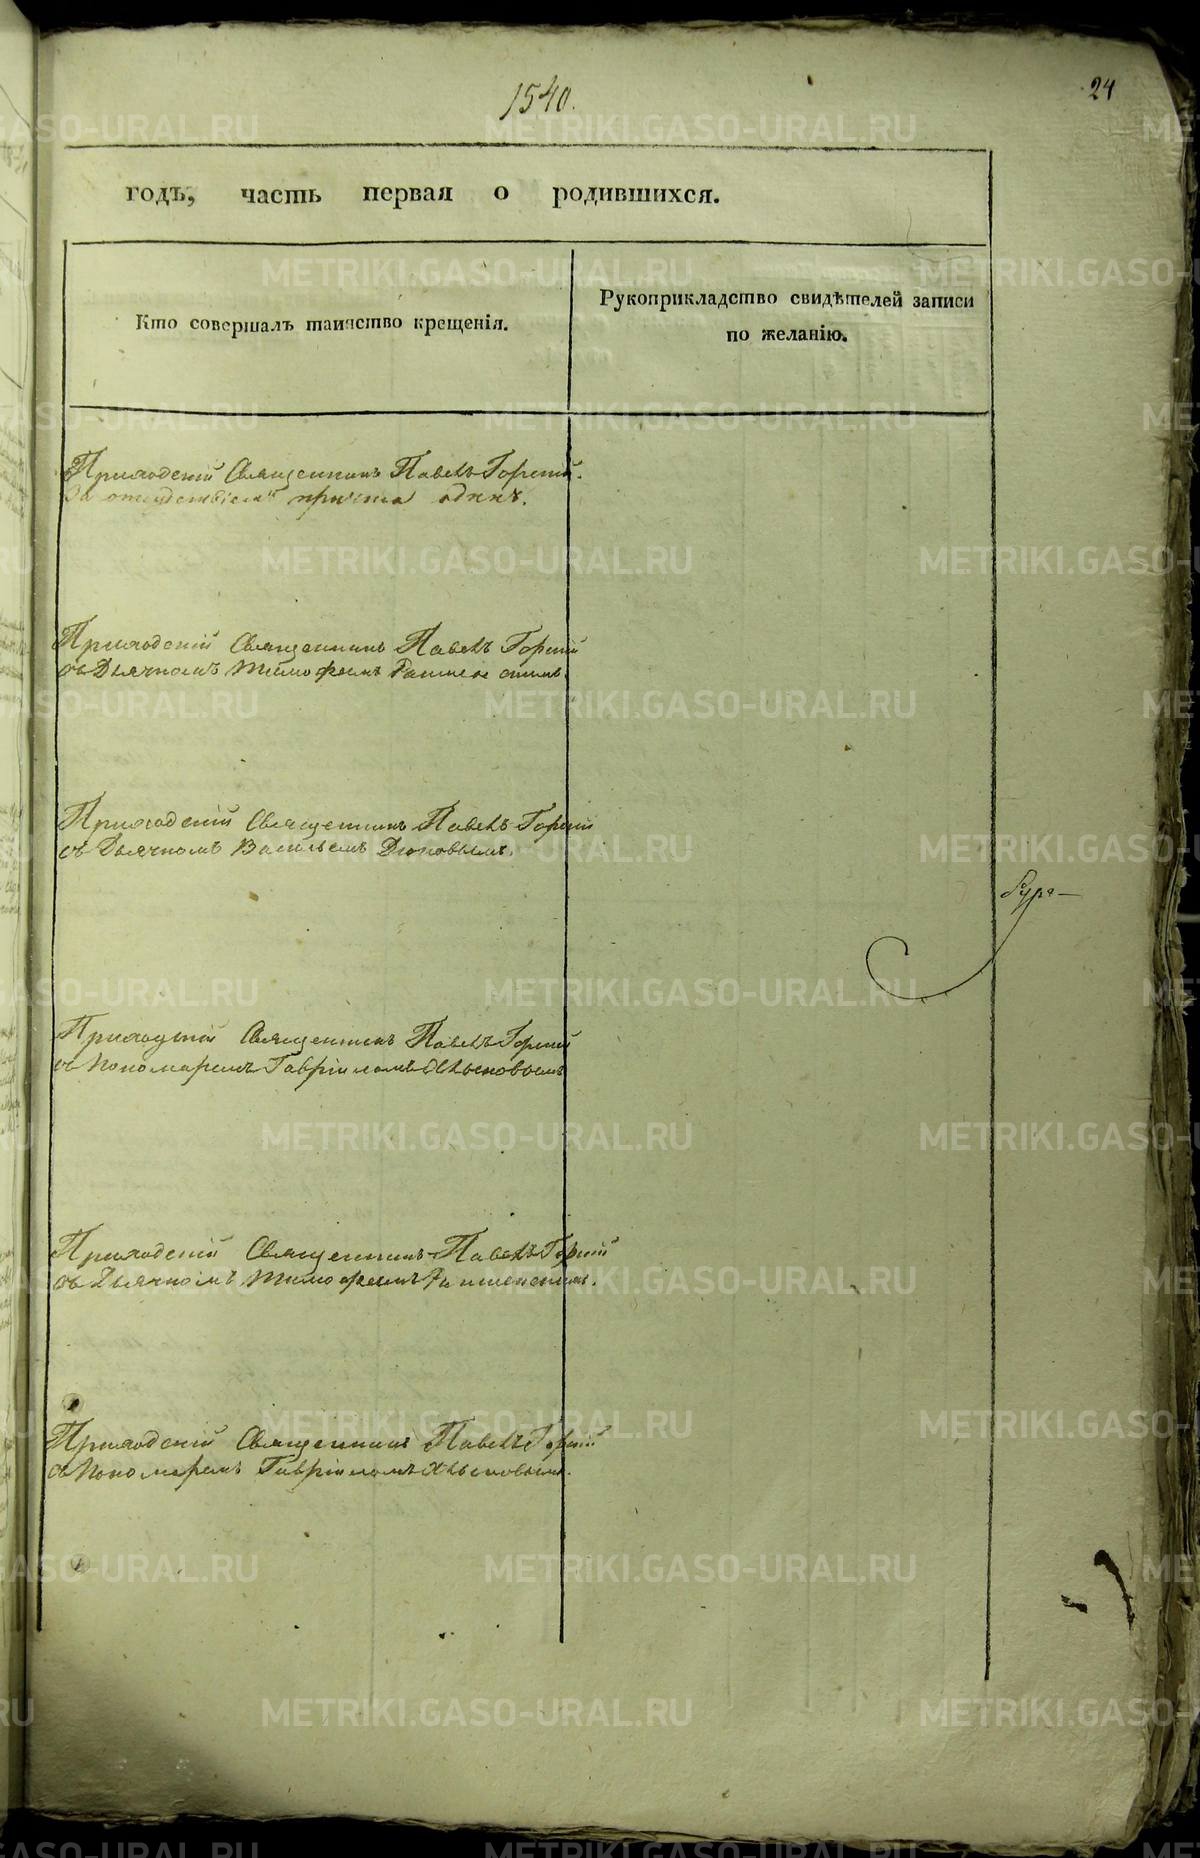 1540.
24
годъ, часть первая о родившихся.
Кто совершалъ таинство крещенія.
Рукоприкладство свидѣтелей записи
по желанію.
Приходскій Священникъ Павелъ Горскій.
За отсудствіемъ причта одинъ.
Приходскій Священникъ Павелъ Горскій
съ Дьячкомъ Тимофеемъ
Приходскій Священникъ Павелъ Горскій
съ Дьячкомъ Васильемъ
Приходскій Священникъ Павелъ Горскій
съ Пономаремъ Гавріиломъ
Приходскій Священникъ Павелъ Горскій
съ Дьячкомъ Тимофеемъ
Приходскій Священникъ Павелъ Горскій
съ Пономаремъ Гавріиломъ
METRIKI.GASO-URAL.RU